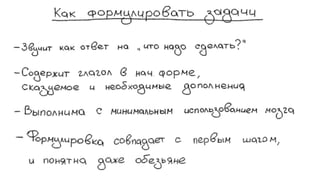 Как формулировать задачи
- Звучит как ответ на „что надо сделать?"
- Содержит глагол в нач форме,
сказуемое и необходимые дополнения
- Выполнима с минимальным использованием мозга
- Формулировка совпадает с первым шагом,
и понятна даже обезьяне